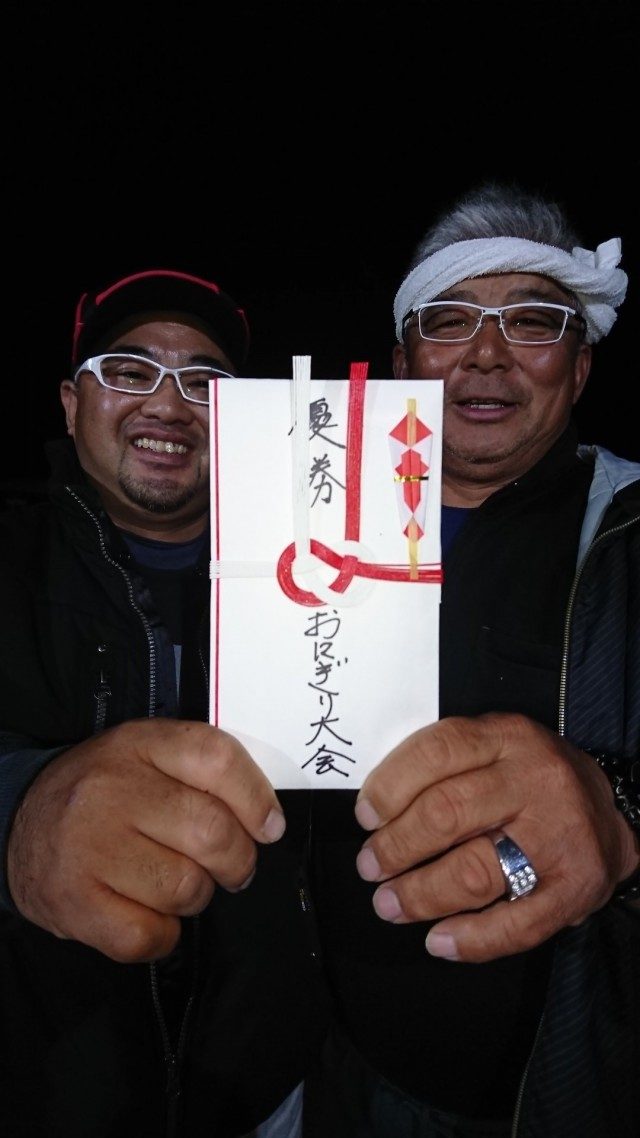 優勝
おにぎり大会